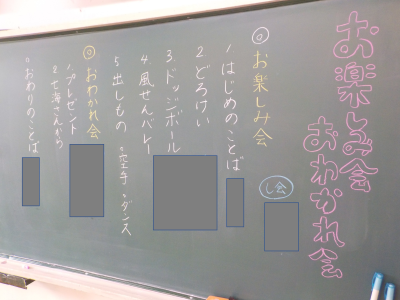 お楽しみ会
おわかれ会
し会
◎お楽しみ会
1.はじめのことば
2.どろけい
3.ドッジボール
4.風せんバレー
5.出しもの 。空手 。ダンス
◎おわかれ会
1.プレゼント
2.七海さんから
。おわりのことば